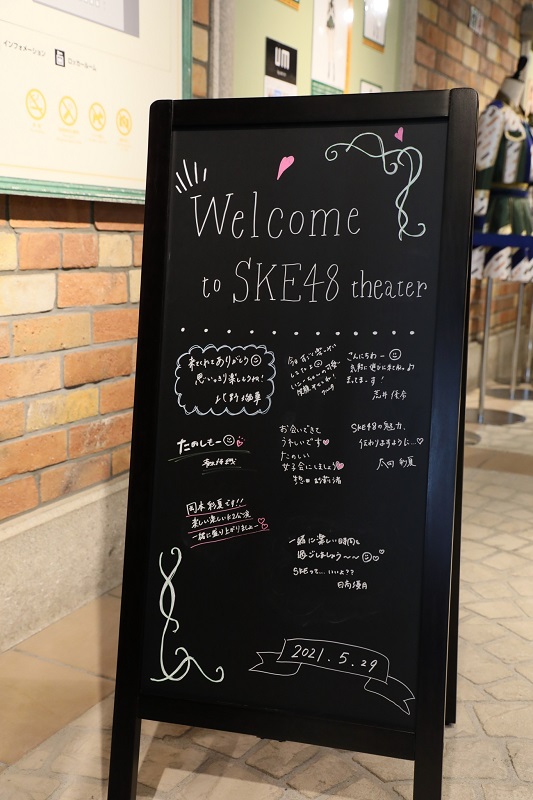 インフォメーション
ロッカールーム
um
Welcome
to SKE48 theater
来てくれてありがとう
思いっきり楽しもうね!
こんにちわー
気軽に遊びに来てね。
まってます!
荒井優希
たのしもー
お会いできて
うれしいです
たのしい
女子会にしましょう
SKE48の魅力、
伝わりますように…
太田 彩夏
岡本彩夏です!!
楽しい楽しい
一緒に盛り上がりましょー
一緒に楽しい時間を
過ごしましょう〜〜
SKEって…いいよ??
日高優月
2021.5.29